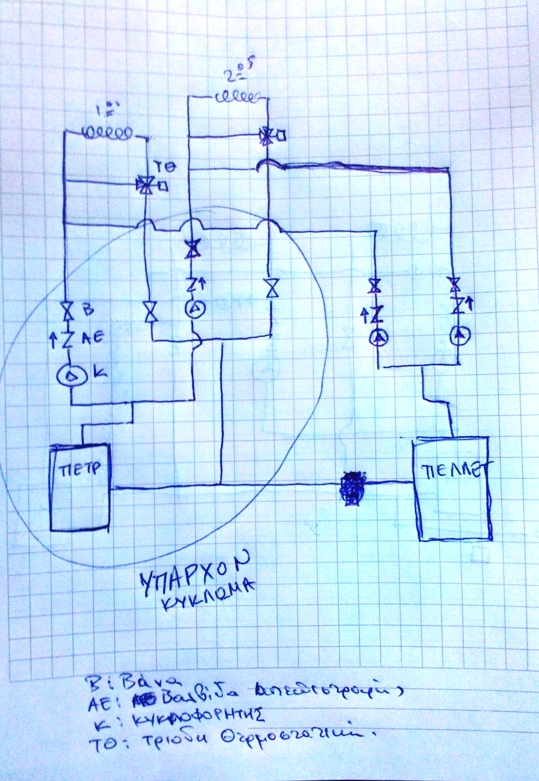 2ος
1ος
ΤΘ
Β
ΑΕ
Κ
ΠΕΤΡ
ΠΕΛΛΕΤ
ΥΠΑΡΧΟΝ
ΚΥΚΛΩΜΑ
Β: Βάνα
ΑΕ: Βαλβίδα Αντεπιστροφής
Κ: ΚΥΚΛΟΦΟΡΗΤΗΣ
ΤΘ: Τρίοδη Θερμοστατική.